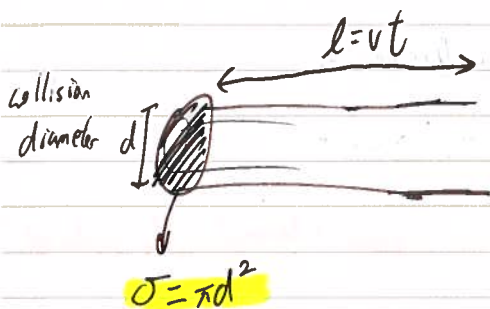 l = vt
collision
diameter d
σ = πd²